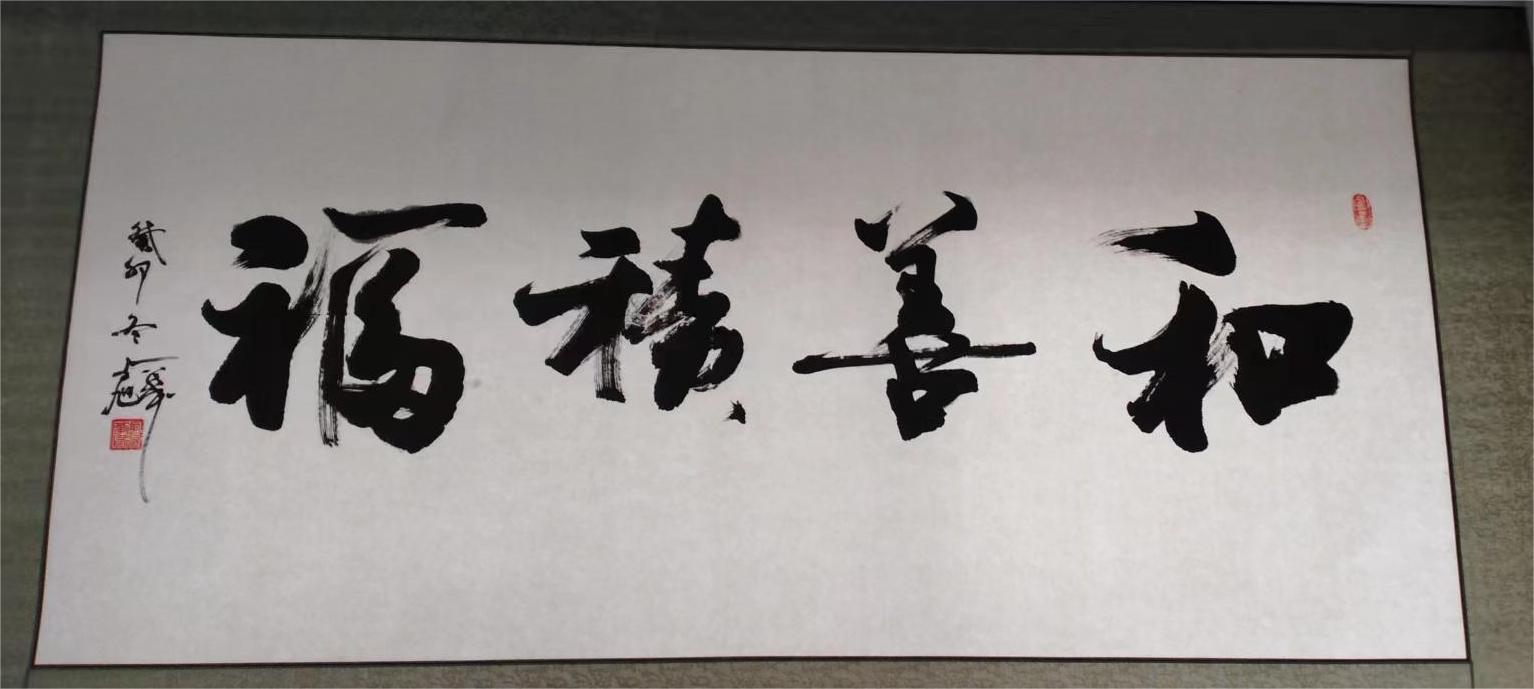 和善積福
癸卯冬